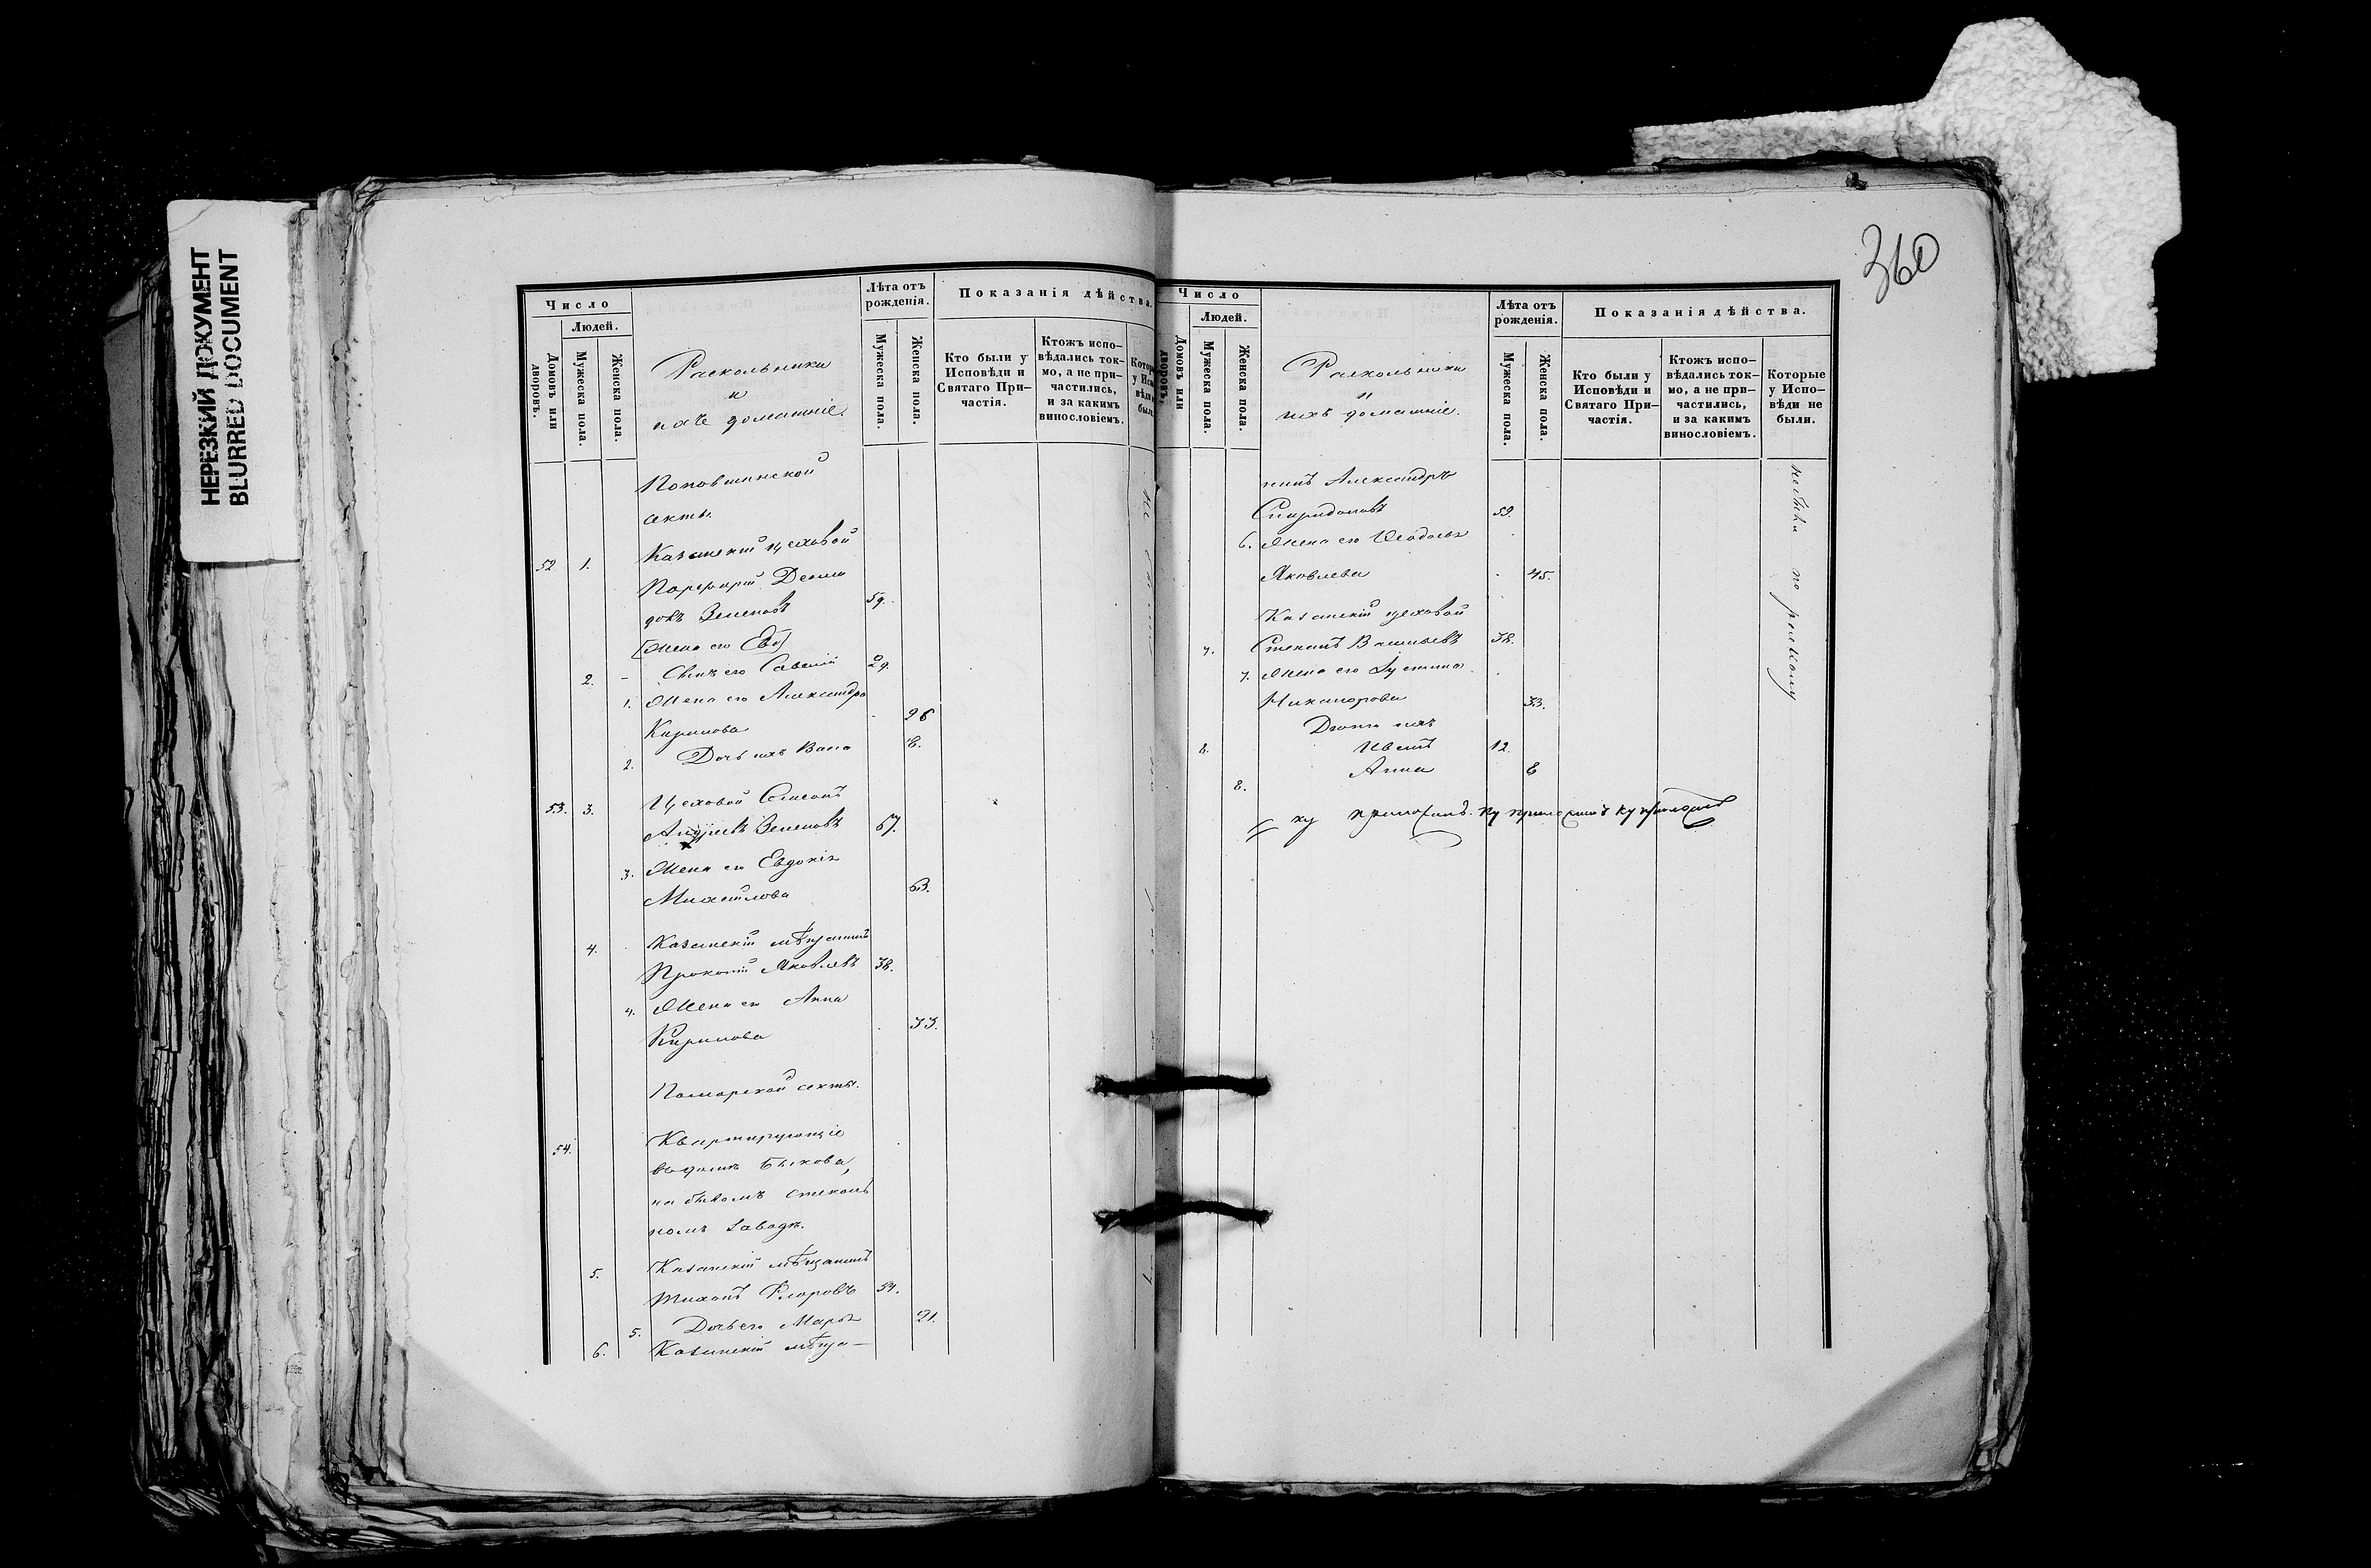 НЕРЕЗКИЙ ДОКУМЕНТ
BLURRED DOCUMENT
Число
Людей.
Домовъ или дворовъ.
Мужеска пола.
Женска пола.
Раскольники
и
ихъ домашніе.
Лѣта отъ рожденія.
Мужеска пола.
Женска пола.
Показанія дѣйства.
Кто были у Исповѣди и Святаго При-
частія.
Ктожъ испо-
вѣдались ток-
мо, а не при-
частились,
и за какимъ
винословіемъ.
Поповшинской
секты.
52 1. Казанскій цеховой
Порфирій Деми
довъ Зеленовъ 59.
[Жена его Евд]
2. - Сынъ его Савелій 29.
1. Жена его Александра
Кирилова 26
2. Дочь ихъ Васа 8.
53. 3. Цеховой Семенъ
Андреевъ Зеленовъ 67.
3. Жена его Евдокія
Михайлова 63.
4. Казанскій мѣщанинъ
Прокопій Яковлевъ 38.
4. Жена его Анна
Кирилова 33.
Поморской секты.
54. Квартирующіе
въ домѣ Быкова,
на бывомъ стеколь
номъ заводѣ.
5. Казанскій мѣщанинъ
Тихонъ Флоровъ 54.
5. Дочь его Марья 21.
6. Казанскій мѣща-
360
Число
Людей.
Домовъ или дворовъ.
Мужеска пола.
Женска пола.
Раскольники
и
ихъ домашніе.
Лѣта отъ рожденія.
Мужеска пола.
Женска пола.
Показанія дѣйства.
Кто были у Исповѣди и Святаго При-
частія.
Ктожъ испо-
вѣдались ток-
мо, а не при-
частились,
и за какимъ
винословіемъ.
Которые
у Испо-
вѣди не
были.
нинъ Александръ
Спиридоновъ 59.
6. Жена его
Яковлева 45.
Казанскій цеховой
7. Степанъ Васильевъ 38.
7. Жена его Іустина
Никанорова 33.
Дѣти ихъ
8. Иванъ 12.
8. Анна 8
не были по расколу